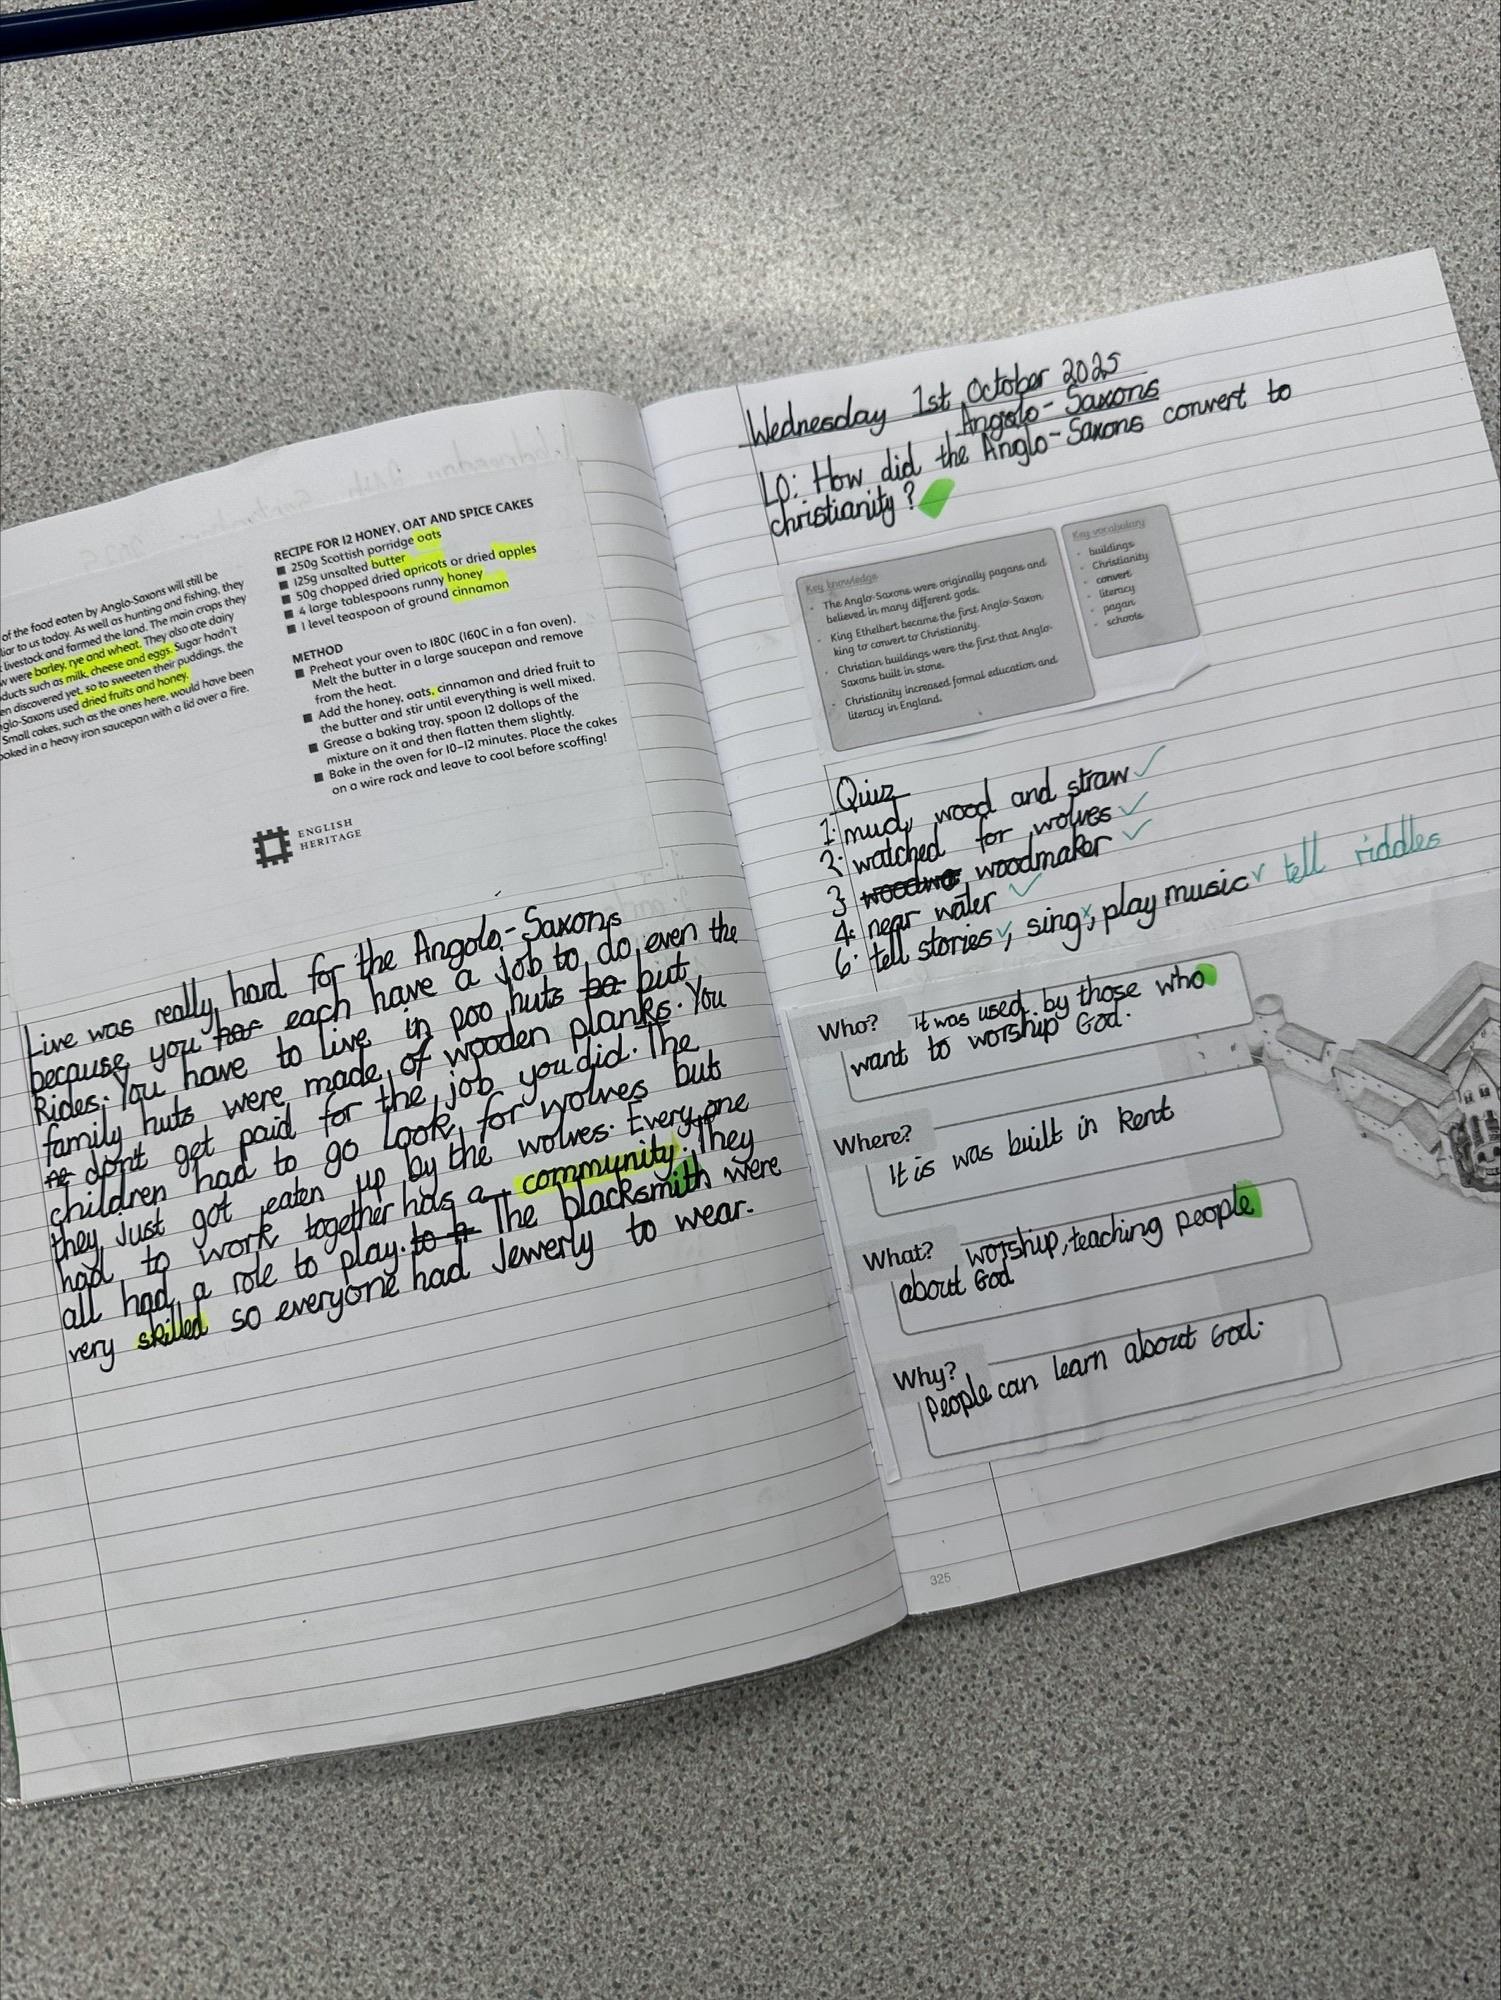 of the food eaten by Anglo-Saxons will still be
liar to us today. As well as hunting and fishing, they
livestock and farmed the land. The main crops they
w were barley, rye and wheat. They also ate dairy
ducts such as milk, cheese and eggs. Sugar hadn't
en discovered yet, so to sweeten their puddings, the
glo-Saxons used dried fruits and honey.
Small cakes, such as the ones here, would have been
ooked in a heavy iron saucepan with a lid over a fire.
RECIPE FOR 12 HONEY, OAT AND SPICE CAKES
■ 250g Scottish porridge oats
■ 125g unsalted butter
■ 50g chopped dried apricots or dried apples
■ 4 large tablespoons runny honey
■ 1 level teaspoon of ground cinnamon
METHOD
■ Preheat your oven to 180C (160C in a fan oven).
■ Melt the butter in a large saucepan and remove
from the heat.
■ Add the honey, oats, cinnamon and dried fruit to
the butter and stir until everything is well mixed.
■ Grease a baking tray, spoon 12 dollops of the
mixture on it and then flatten them slightly.
■ Bake in the oven for 10–12 minutes. Place the cakes
on a wire rack and leave to cool before scoffing!
ENGLISH
HERITAGE
Live was really hard for the Angolo-Saxons
because you has each have a job to do even the
Rides. You have to live in poo huts but
family huts were made of wooden planks. You
don't get paid for the job you did. The
children had to go look for wolves but
they just got eaten up by the wolves. Every one
had to work together has a community. They
all had a role to play. to The blacksmith were
very skilled so everyone had Jewerly to wear.
Wednesday 1st October 2025
Angolo-Saxons
LO: How did the Anglo-Saxons convert to
christianity?
Key knowledge
· The Anglo-Saxons were originally pagans and
believed in many different gods.
· King Ethelbert became the first Anglo-Saxon
king to convert to Christianity.
· Christian buildings were the first that Anglo-
Saxons built in stone.
· Christianity increased formal education and
literacy in England.
Key vocabulary
· buildings
· Christianity
· convert
· literacy
· pagan
· schools
Quiz
1. mud, wood and straw ✓
2. watched for wolves ✓
3. woodmaker ✓
4. near water ✓
6. tell stories ✓, sing ✓, play music ✓ tell riddles
Who? it was used by those who
want to worship God.
Where?
It is was built in Kent
What? worship, teaching people
about God
Why?
People can learn about God.
325